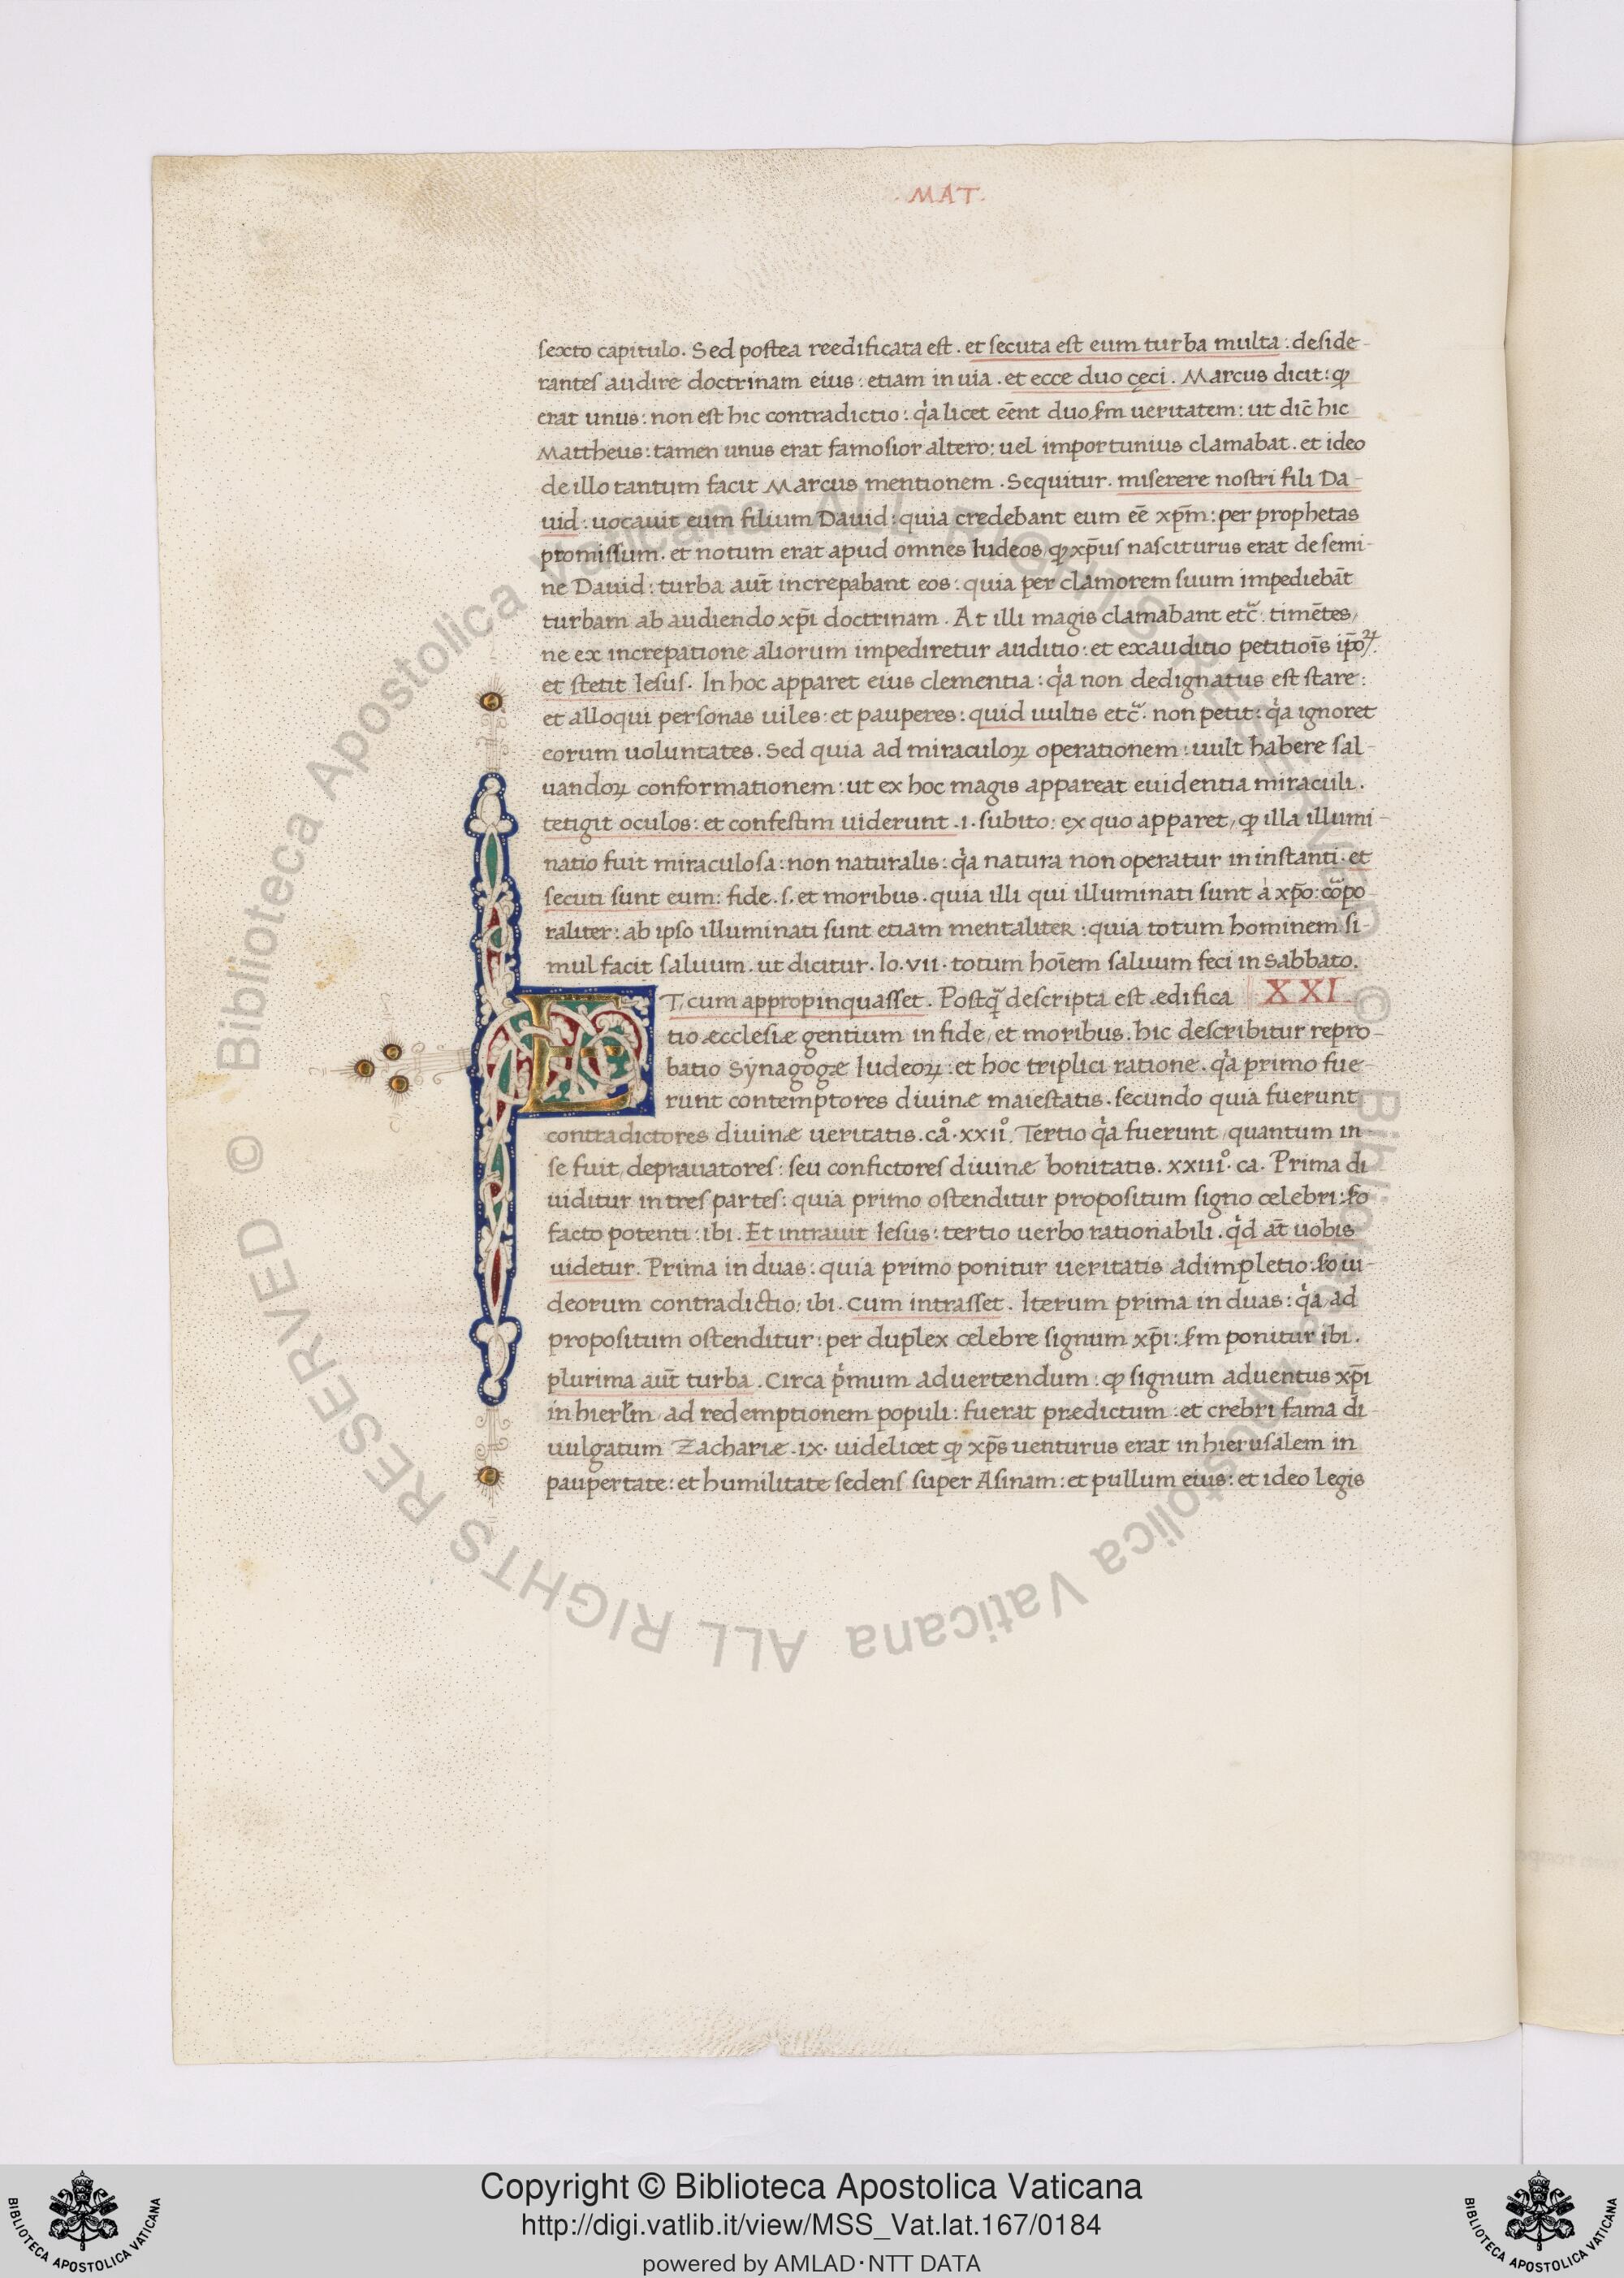 . MAT .
sexto capitulo. Sed postea reedificata est. et secuta est eum turba multa: deside-
rantes audire doctrinam eius: etiam in uia. et ecce duo cęci. Marcus dicit: ꝙ
erat unus: non est hic contradictio: q̇a licet eēnt duo ẜm ueritatem: ut dic̄ hic
Mattheus: tamen unus erat famosior altero: uel importunius clamabat. et ideo
de illo tantum facit Marcus mentionem. Sequitur. miserere nostri fili Da-
uid: uocauit eum filium Dauid: quia credebant eum eē xp̄m: per prophetas
promissum. et notum erat apud omnes Iudeos, ꝙ xp̄us nasciturus erat de semi-
ne Dauid: turba aut̄ increpabant eos: quia per clamorem suum impediebāt
turbam ab audiendo xp̄i doctrinam. At illi magis clamabant etc̄: timētes,
ne ex increpatione aliorum impediretur auditio: et exauditio petitioīs ip̄oꝝ.
et stetit Iesus. In hoc apparet eius clementia: q̇a non dedignatus est stare:
et alloqui personas uiles: et pauperes: quid uultis etc̄. non petit: q̇a ignoret
eorum uoluntates. Sed quia ad miraculoꝝ operationem: uult habere sal-
uandoꝝ conformationem: ut ex hoc magis appareat euidentia miraculi.
tetigit oculos: et confestim uiderunt .i. subito: ex quo apparet, ꝙ illa illumi-
natio fuit miraculosa: non naturalis: q̇a natura non operatur in instanti. et
secuti sunt eum: fide .s. et moribus. quia illi qui illuminati sunt à xp̄o: cōpo-
raliter: ab ipso illuminati sunt etiam mentaliter: quia totum hominem si-
mul facit saluum. ut dicitur. Io. VII. totum hoīem saluum feci in Sabbato.
ET, cum appropinquasset. Postq̄ descripta est ædifica XXI
tio æcclesiæ gentium in fide, et moribus. hic describitur repro-
batio Synagogæ Iudeoꝝ: et hoc triplici ratione. q̇a primo fue-
runt contemptores diuinæ maiestatis. secundo quia fuerunt
contradictores diuinæ ueritatis. cå. xxiiº. Tertio q̇a fuerunt, quantum in
se fuit, deprauatores: seu confictores diuinæ bonitatis. xxiiiº. ca. Prima di
uiditur in tres partes: quia primo ostenditur propositum signo celebri: ẜo
facto potenti: ibi. Et intrauit Iesus: tertio uerbo rationabili. q̇d at̄ uobis
uidetur. Prima in duas: quia primo ponitur ueritatis adimpletio: ẜo iu-
deorum contradictio: ibi. Cum intrasset. Iterum prima in duas: q̇a, ad
propositum ostenditur: per duplex celebre signum xp̄i: ẜm ponitur ibi.
plurima aut̄ turba. Circa ṗmum aduertendum: ꝙ signum aduentus xp̄i
in hierl̄m, ad redemptionem populi: fuerat prædictum: et crebri fama di-
uulgatum Zachariæ. IX. uidelicet ꝙ xp̄s uenturus erat in hierusalem in
paupertate: et humilitate sedens super Asinam: et pullum eius: et ideo legis
© Biblioteca Apostolica Vaticana ALL RIGHTS RESERVED © Biblioteca Apostolica Vaticana ALL RIGHTS RESERVED
Copyright © Biblioteca Apostolica Vaticana
http://digi.vatlib.it/view/MSS_Vat.lat.167/0184
powered by AMLAD·NTT DATA
BIBLIOTECA APOSTOLICA VATICANA
BIBLIOTECA APOSTOLICA VATICANA